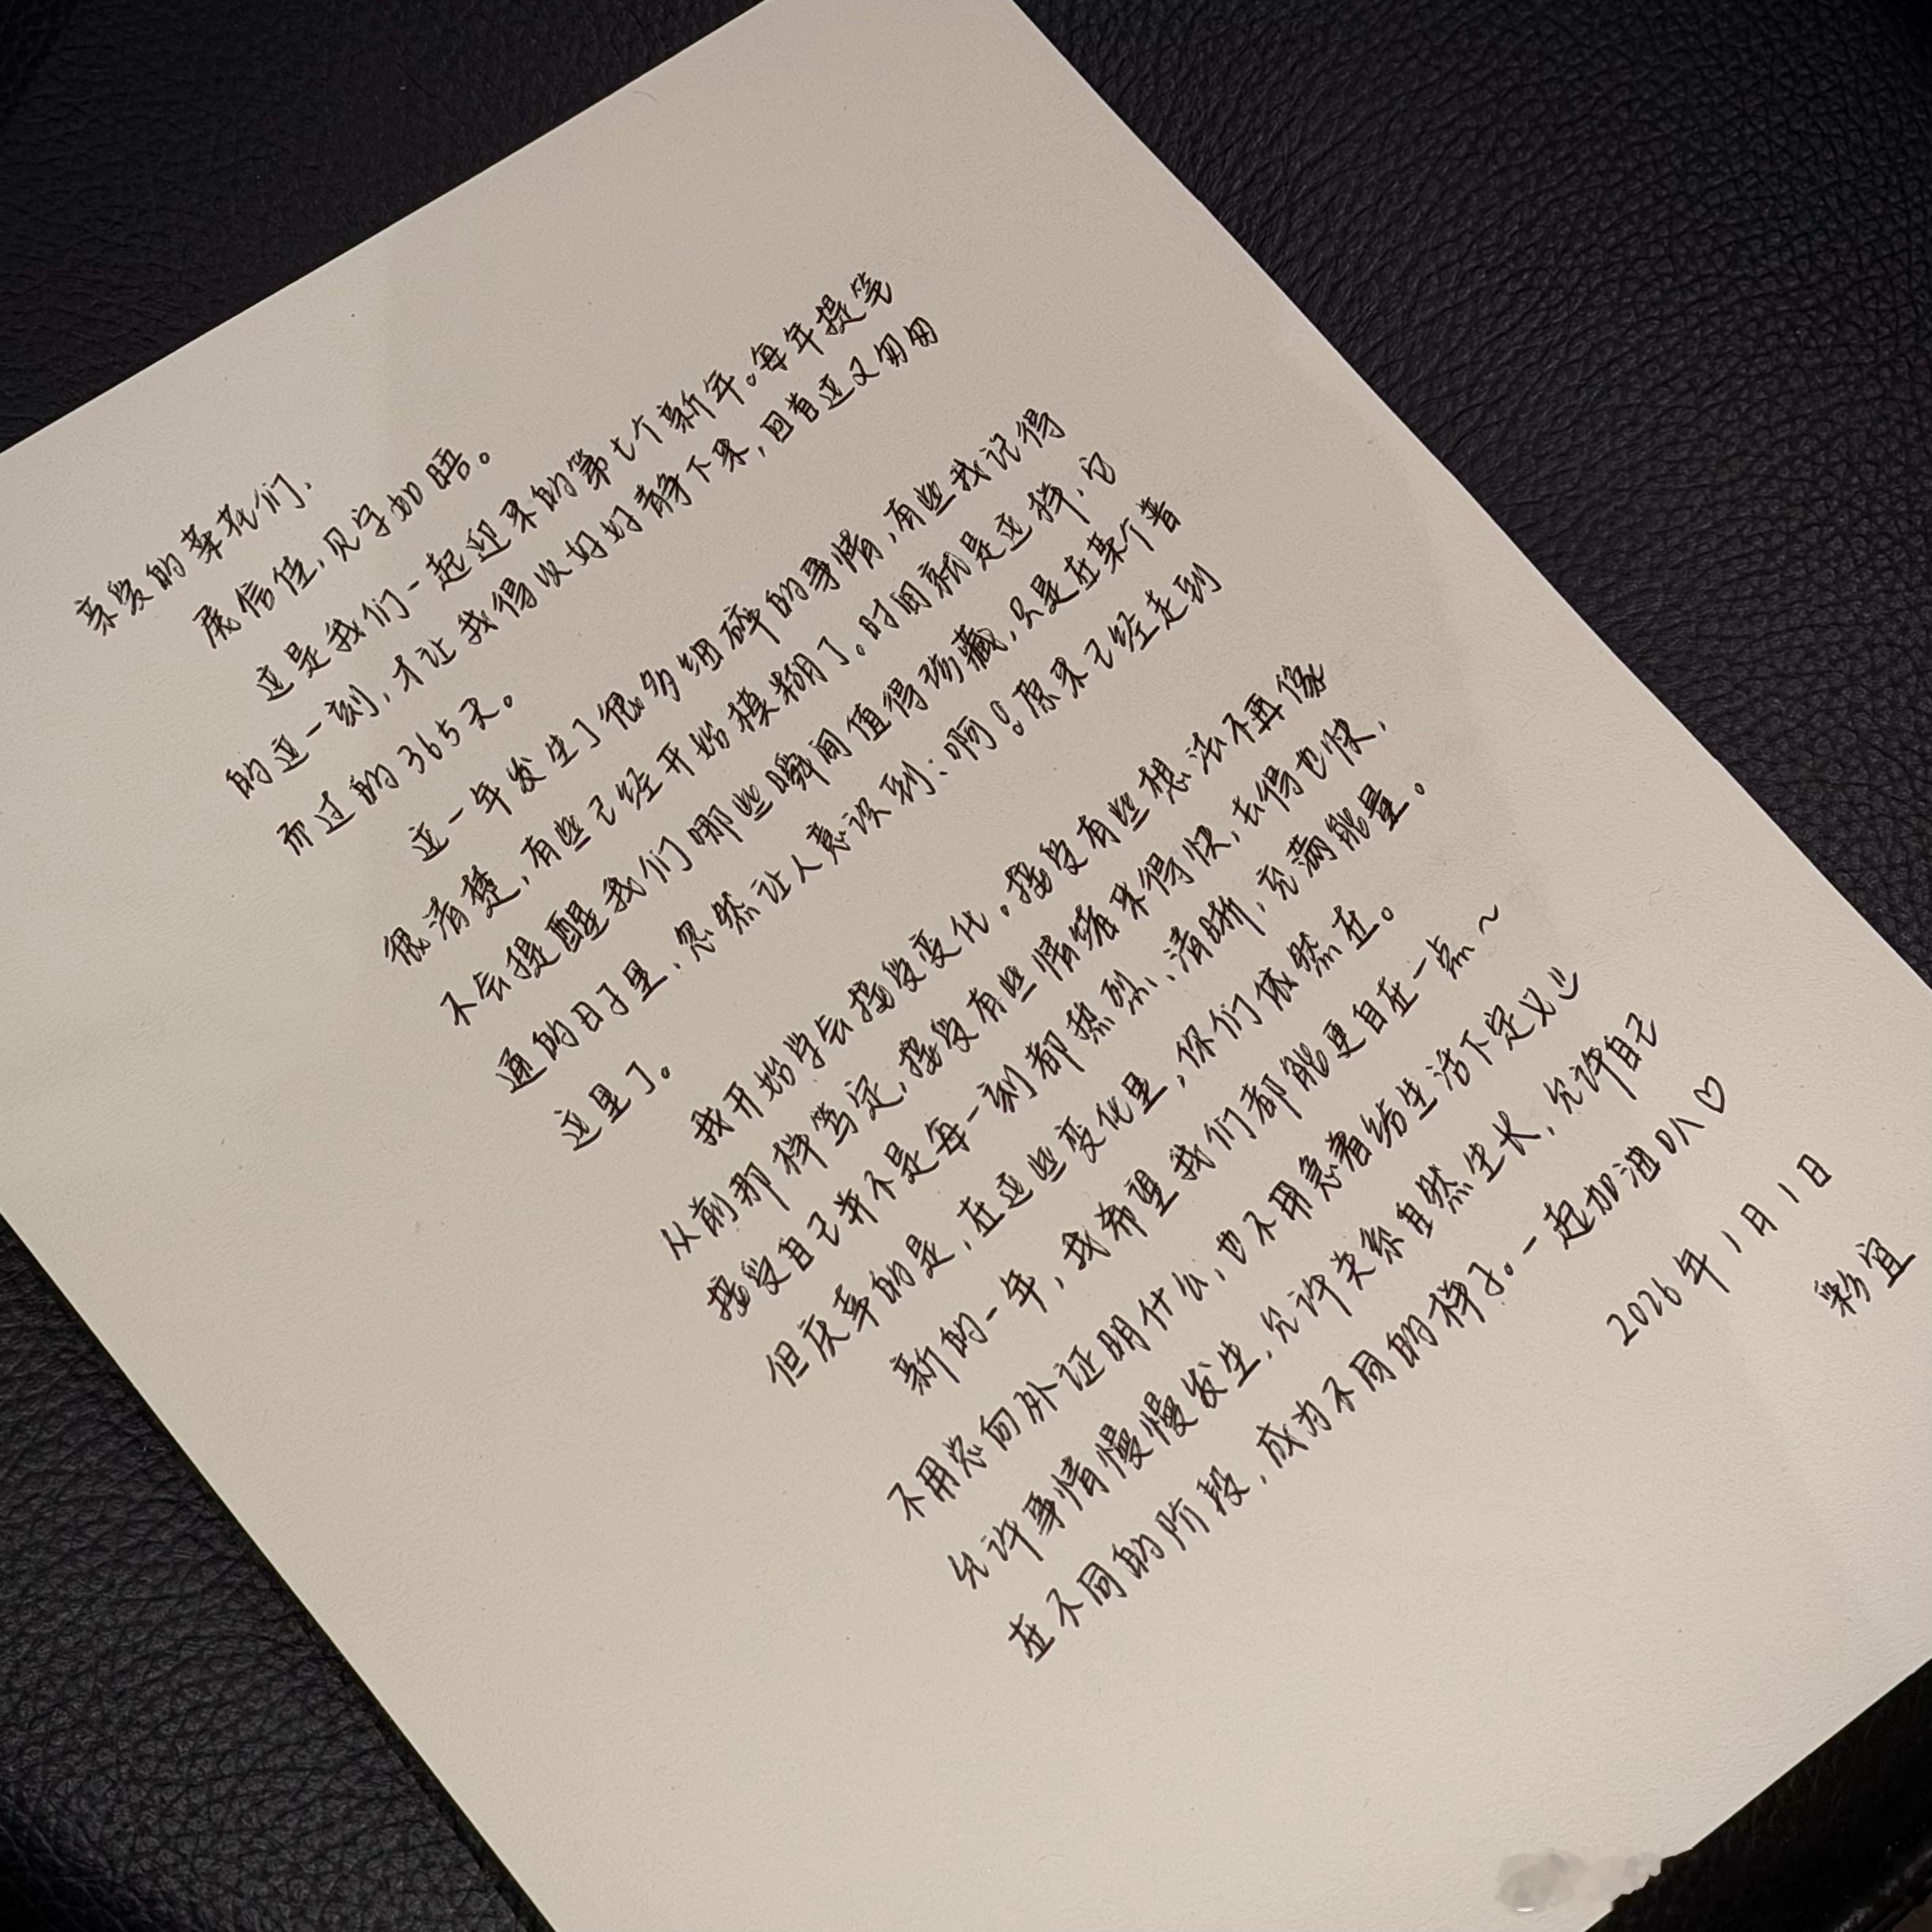 亲爱的菜花们、
展信佳，见字如晤。
这是我们一起迎来的第七个新年。每年提笔
的这一刻，才让我得以好好静下来，回首这又匆匆
而过的365天。
这一年发生了很多细碎的事情，有些我记得
很清楚，有些已经开始模糊了。时间就是这样，它
不会提醒我们哪些瞬间值得珍藏，只是在某个普
通的日子里、忽然让人意识到：啊！原来已经走到
这里了。
我开始学会接受变化。接受有些想法不再像
从前那样笃定，接受有些情绪来得快，去得也快，
接受自己并不是每一刻都热烈、清晰，充满能量。
但庆幸的是，在这些变化里，你们依然在。
新的一年，我希望我们都能更自在一点～
不用总向外证明什么，也不用急着给生活下定义
允许事情慢慢发生，允许关系自然生长，允许自己
在不同的阶段，成为不同的样子。一起加油叭♡
2026年1月1日
彩宜